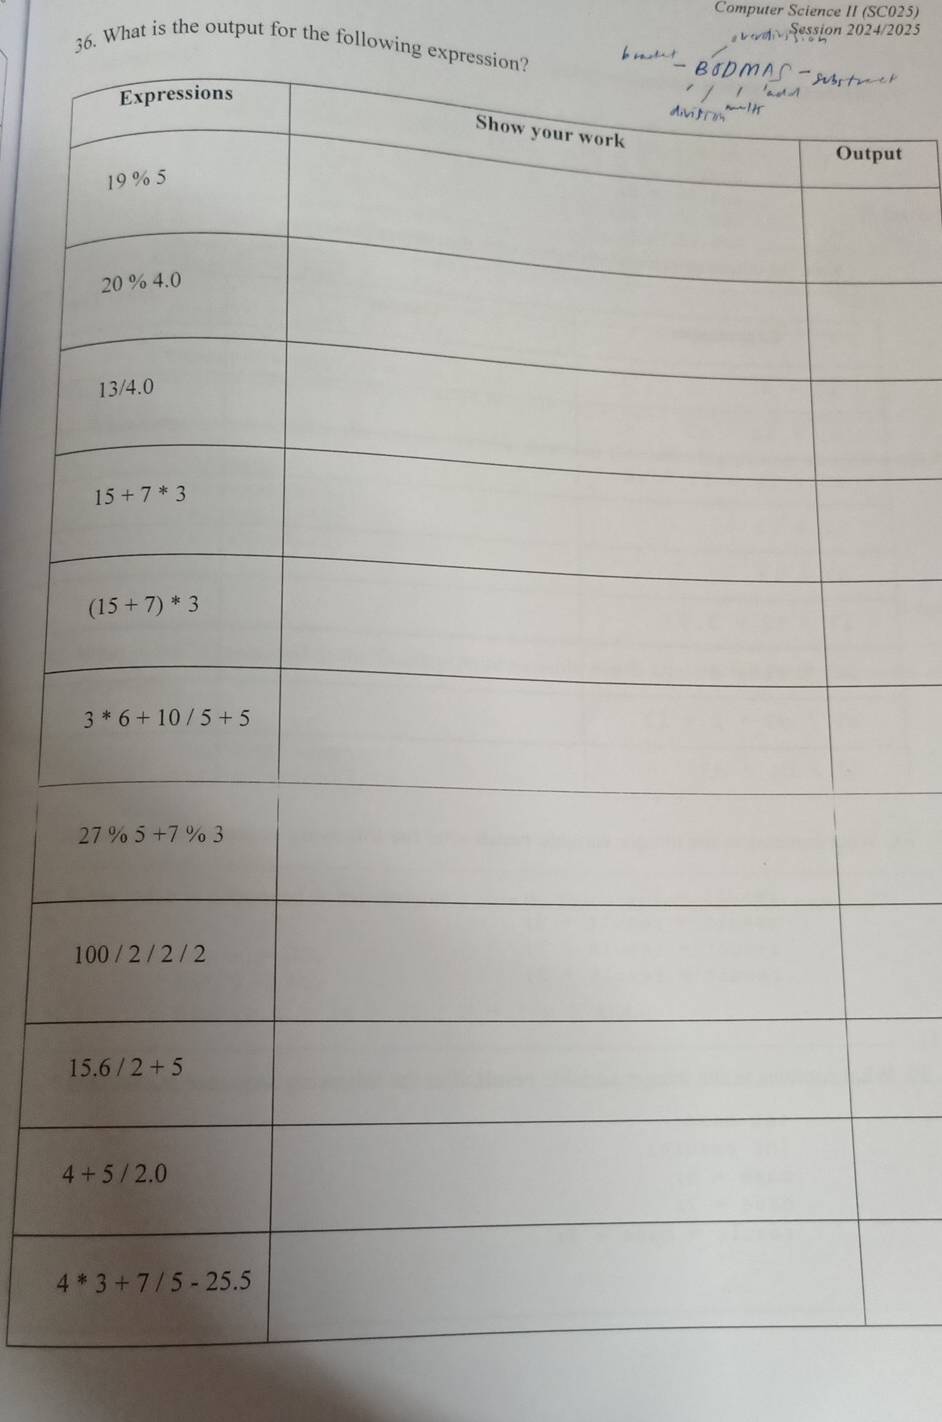 Computer Science II (SC025)
Session 2024/2025
36. What is the output for the following expression?
bracket - BODMAS - substract
division
add
Expressions
Show your work
Output
19 % 5
20 % 4.0
13/4.0
15 + 7 * 3
(15 + 7) * 3
3 * 6 + 10 / 5 + 5
27 % 5 +7 % 3
100 / 2 / 2 / 2
15.6 / 2 + 5
4 + 5 / 2.0
4 * 3 + 7 / 5 - 25.5